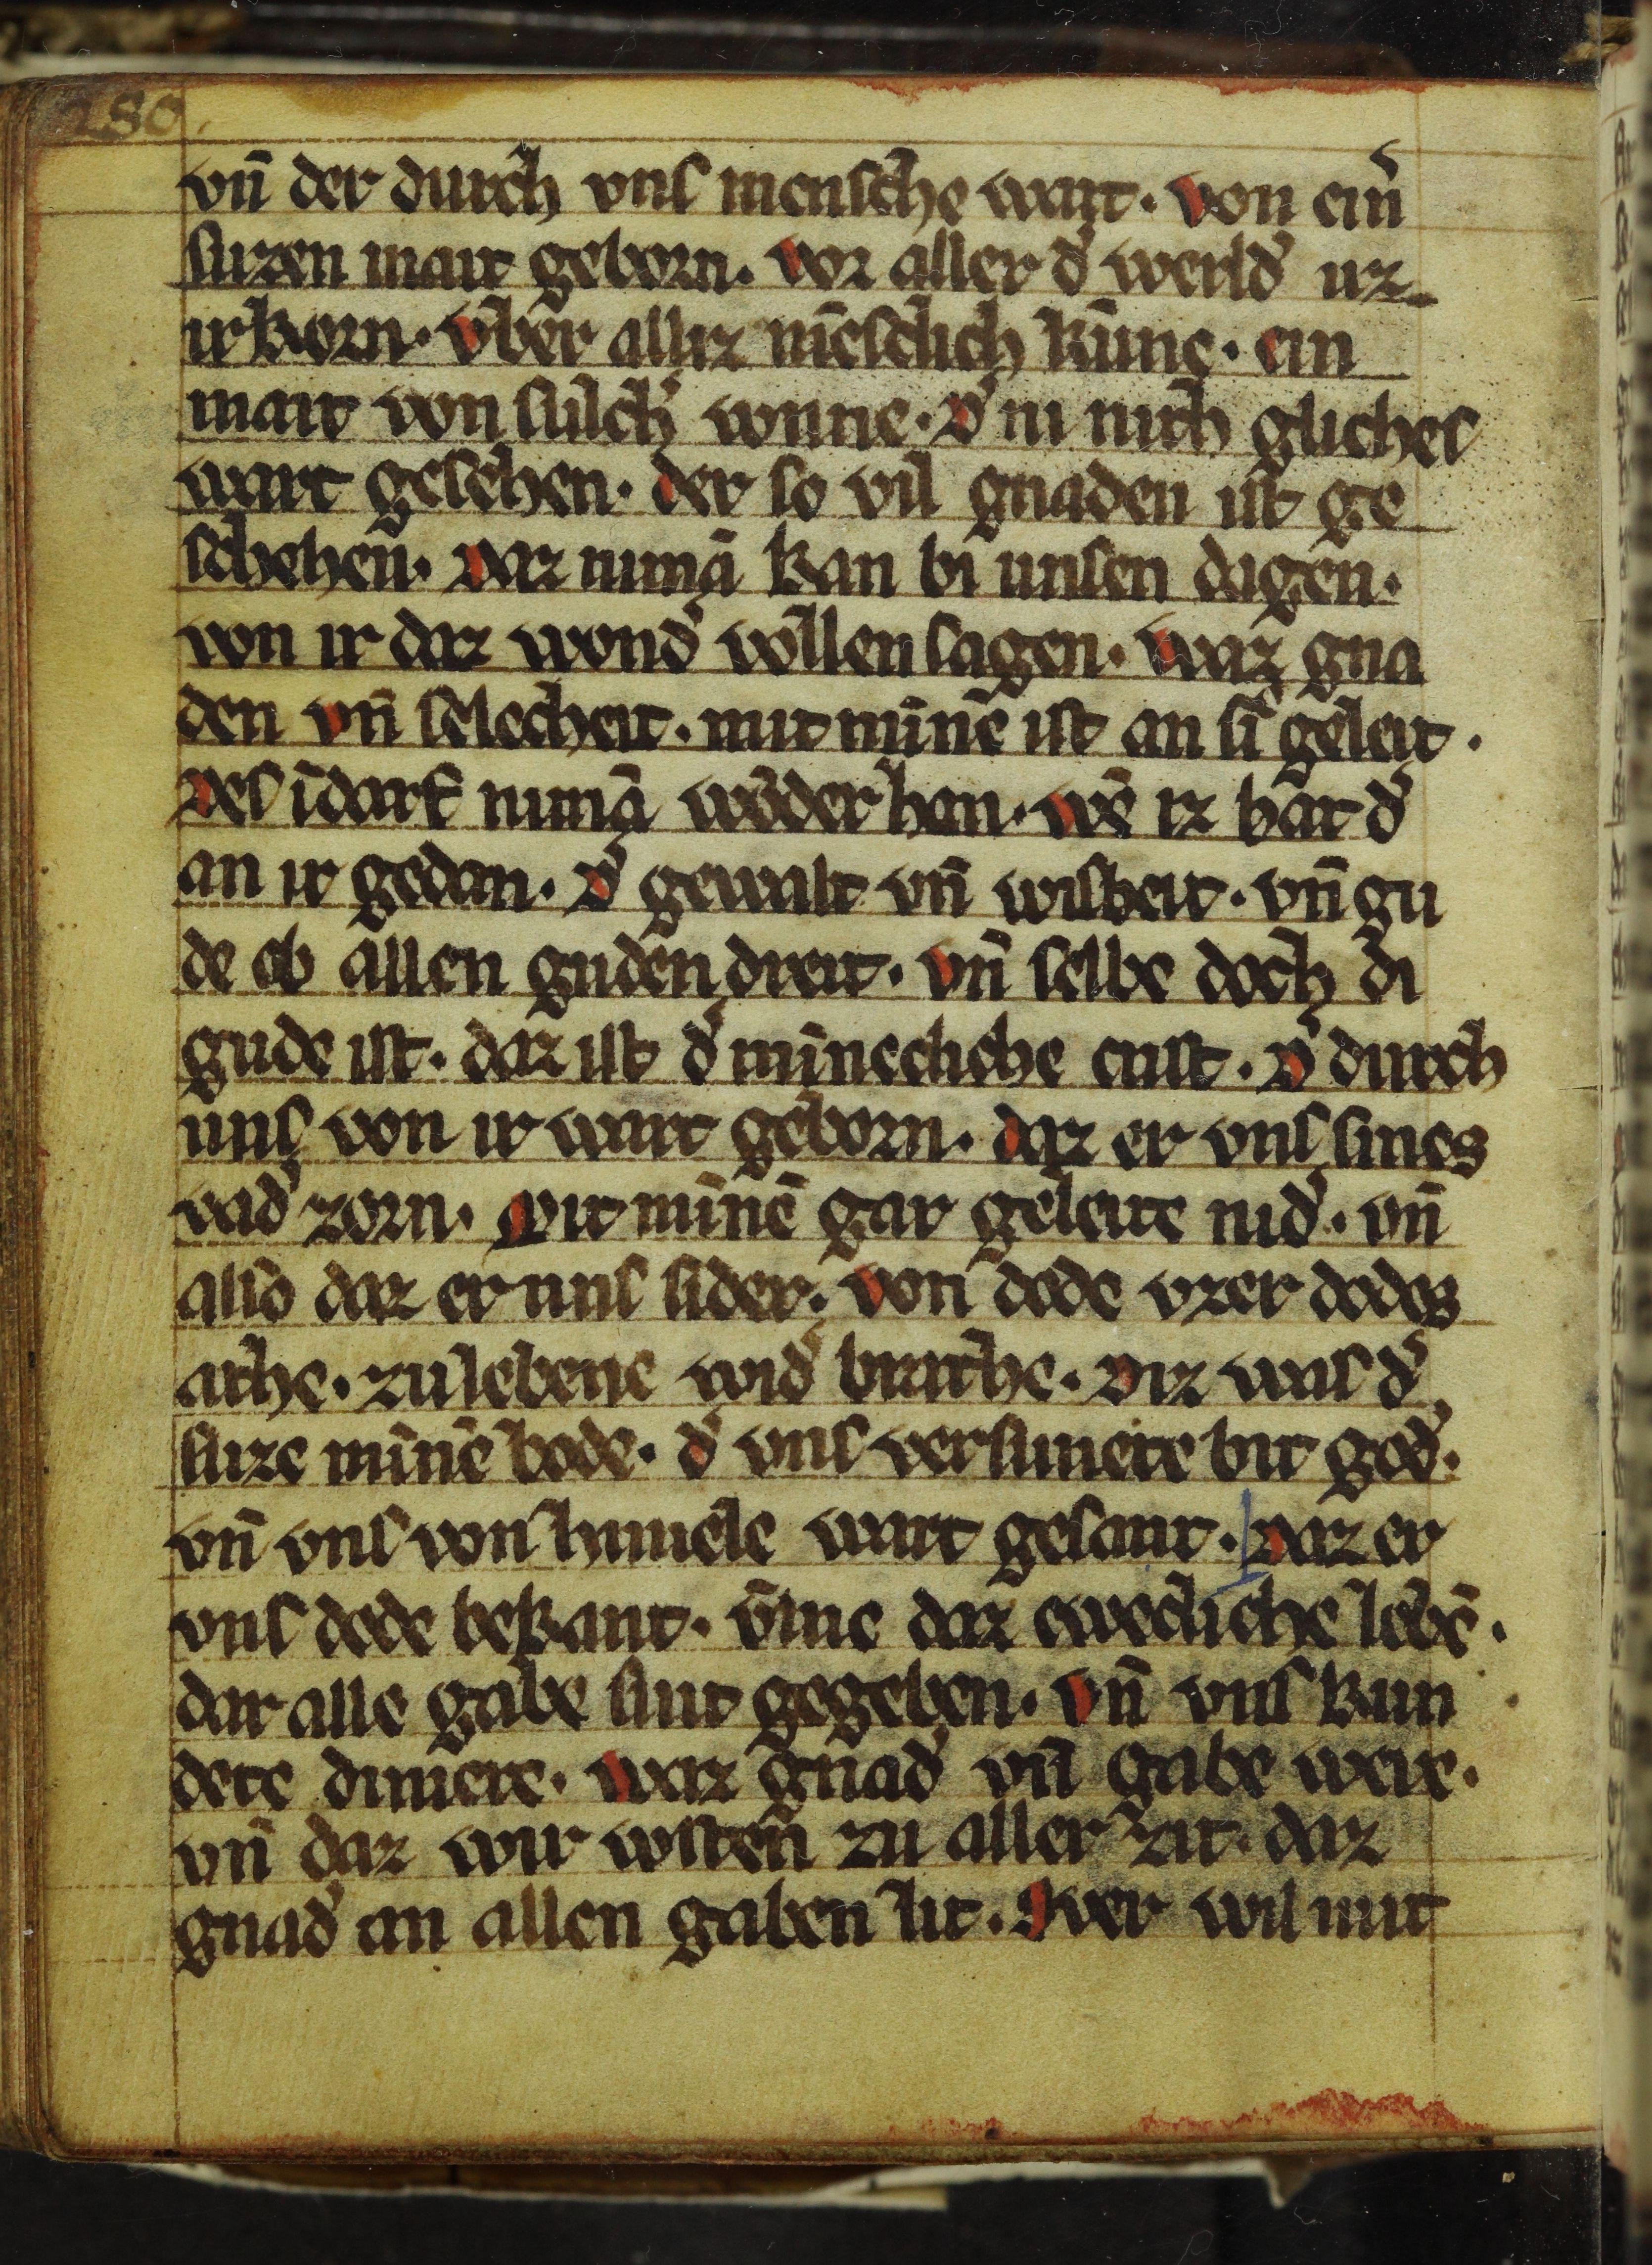 280.
vn̄ der durch vns mensche wart. von ein̄
suzen mait geborn. vor aller d̓ werld̓ uz
irkorn. vber alliz mēschlich kūne. ein
mait von sulch̓ wnne. d̓ ni nith gliches
wart gesehen. der so vil gnaden ist ge
schehen. daz nimā kan bi unsen dagen.
von ir daz wond̓ vollen sagen. waz gna
den vn̄ selecheit. mit mīnē ist an si geleit.
des īdarf nimā wōder han. wē iz hat d̓
an ir gedan. d̓ gewalt vn̄ wisheit. vn̄ gu
de ob allen guden dreit. vn̄ selbe doch di
gude ist. daz ist d̓ mīnecliche crist. d̓ durch
uns von ir wart geborn. daz er vns sines
vad̓ zorn. Mit mīnē gar geleite nid̓. vn̄
also daz er uns sider. von dode vzer dodes
athe. zu lebene wid̓ brathe. diz was d̓
suze mīnē bode. d̓ vns versunete bit god̓.
vn̄ vns von himele wart gesant. daz er
vns dede bekant. v̄me daz ewecliche lebē.
dar alle gabe sint gegeben. vn̄ vns kun
dete dimere. waz gnad̓ vn̄ gabe were.
vn̄ daz wir wisten zu aller zit. daz
gnad̓ an allen gaben lit. Swer wil mit